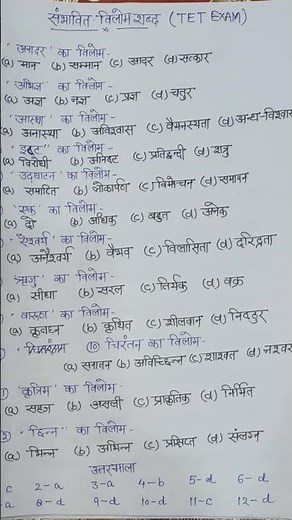 संभावित विलोम शब्द (TET EXAM)
'अनादर' का विलोम-
(a) मान (b) सम्मान (c) आदर (d) सत्कार
'अभिज्ञ' का विलोम-
(a) अज्ञ (b) नज्ञ (c) प्रज्ञ (d) चतुर
'आस्था' का विलोम-
(a) अनास्था (b) अविश्वास (c) वैमनस्यता (d) अन्ध-विश्वास
'इष्ट" का विलोम-
(a) विरोधी (b) अनिष्ट (c) प्रतिद्वन्दी (d) शत्रु
'उद्घाटन' का विलोम-
(a) समादित (b) लोकार्पण (c) विमोचन (d) समापन
'एक' का विलोम-
(a) दो (b) अधिक (c) बहुत (d) अनेक
'ऐश्वर्य' का विलोम-
(a) अनैश्वर्य (b) वैभव (c) विलासिता (d) दरिद्रता
'ऋजु' का विलोम-
(a) सीधा (b) सरल (c) तिर्यक (d) वक्र
का विलोम-
(a) (b) (c) शीलवान (d) निष्ठुर
(10) चिरंतन का विलोम-
(a) सनातन (b) अविच्छिन्न (c) शाश्वत (d) नश्वर
'कृत्रिम' का विलोम-
(a) सहज (b) असली (c) प्राकृतिक (d) निर्मित
'छिन्न" का विलोम-
(a) भिन्न (b) अभिन्न (c) प्रक्षिप्त (d) संलग्न
उत्तरमाला
c 2-a 3-a 4-b 5-d 6-d
a 8-d 9-d 10-d 11-c 12-d